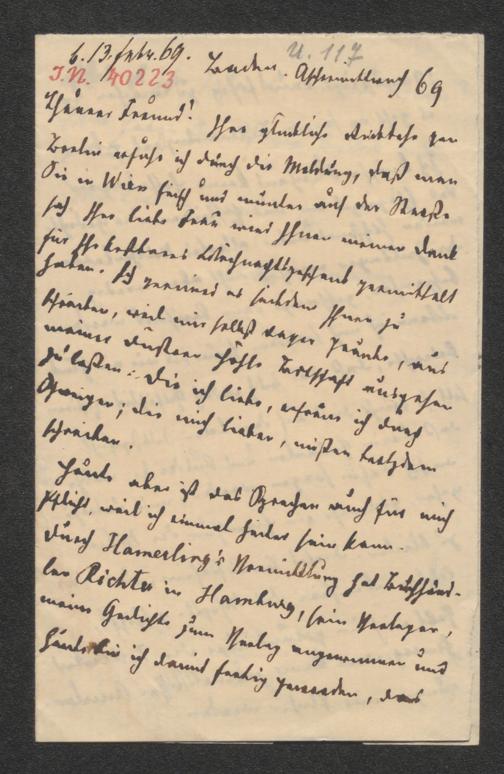 b. 13. Febr. 69.
U. 117
I.N. 40223
Baden. Aschermittwoch 69
Theurer Freund!
Ihre glückliche Rückkehr von
Berlin erfuhr ich durch die Meldung, daß man
Sie in Wien frisch und munter auf der Straße
sah. Ihre liebe Frau wird Ihnen meinen Dank
für Ihr kostbares Weihnachtsgeschenk vermittelt
haben. Ich vermied es seitdem Ihnen zu
schreiben, weil mir selbst davor graute, aus
meiner düsteren Höhle Botschaft ausgehen
zu lassen. Die ich liebe, erfreue ich durch
Schweigen; die mich lieben, müßen trotzdem
schreiben.
Heute aber ist das Sprechen auch für mich
Pflicht, weil ich einmal heiter sein kann.
Durch Hamerling's Vermittlung hat Buchhänd-
ler Richter in Hamburg, sein Verleger,
meine Gedichte zum Verlag angenommen und
heute bin ich damit fertig geworden, das